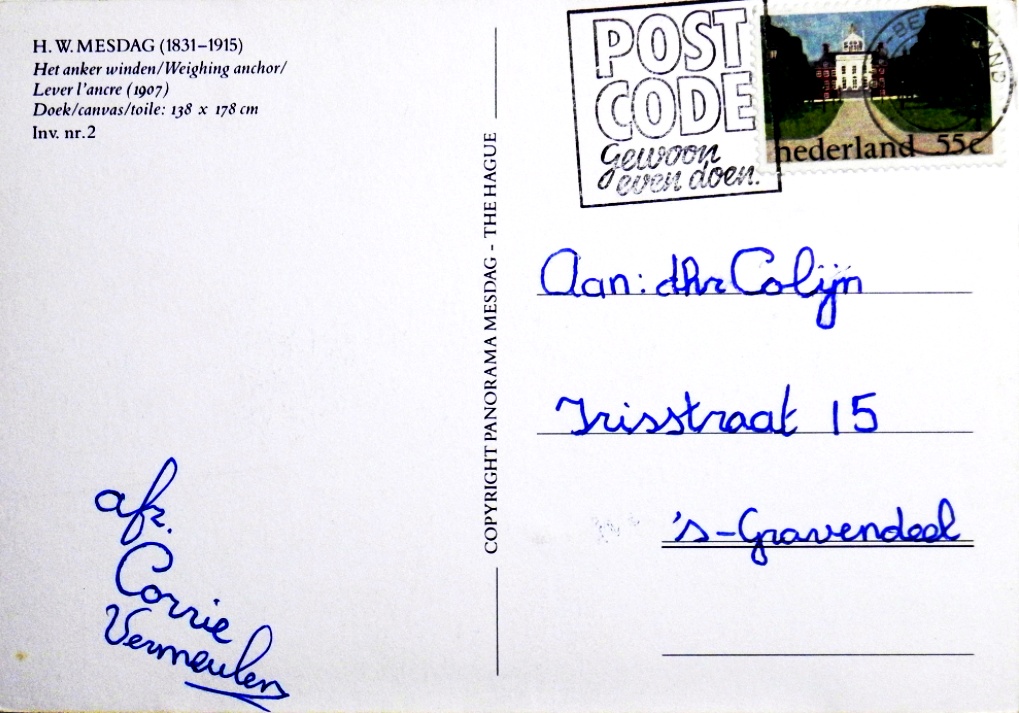 H. W. MESDAG (1831–1915)
Het anker winden/Weighing anchor/
Lever l'ancre (1907)
Doek/canvas/toile: 138 x 178 cm
Inv. nr. 2
afz.
Corrie
Vermeulen
COPYRIGHT PANORAMA MESDAG - THE HAGUE
POST
CODE
gewoon
even doen.
nederland 55c
Aan: dhr Colijn
Irisstraat 15
's-Gravendeel